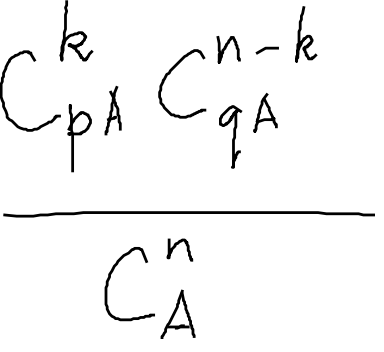 C_{pA}^{k} C_{qA}^{n-k}
C_{A}^{n}